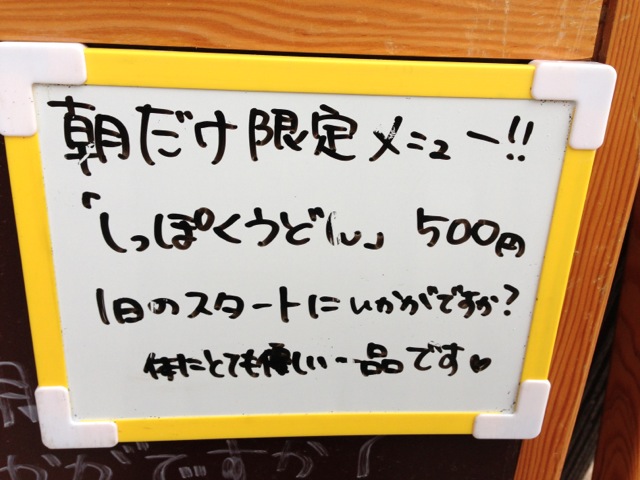 朝だけ限定メニュー!!
「しっぽくうどん」 500円
1日のスタートにいかがですか?
体にとても優しい一品です♥
かがですか